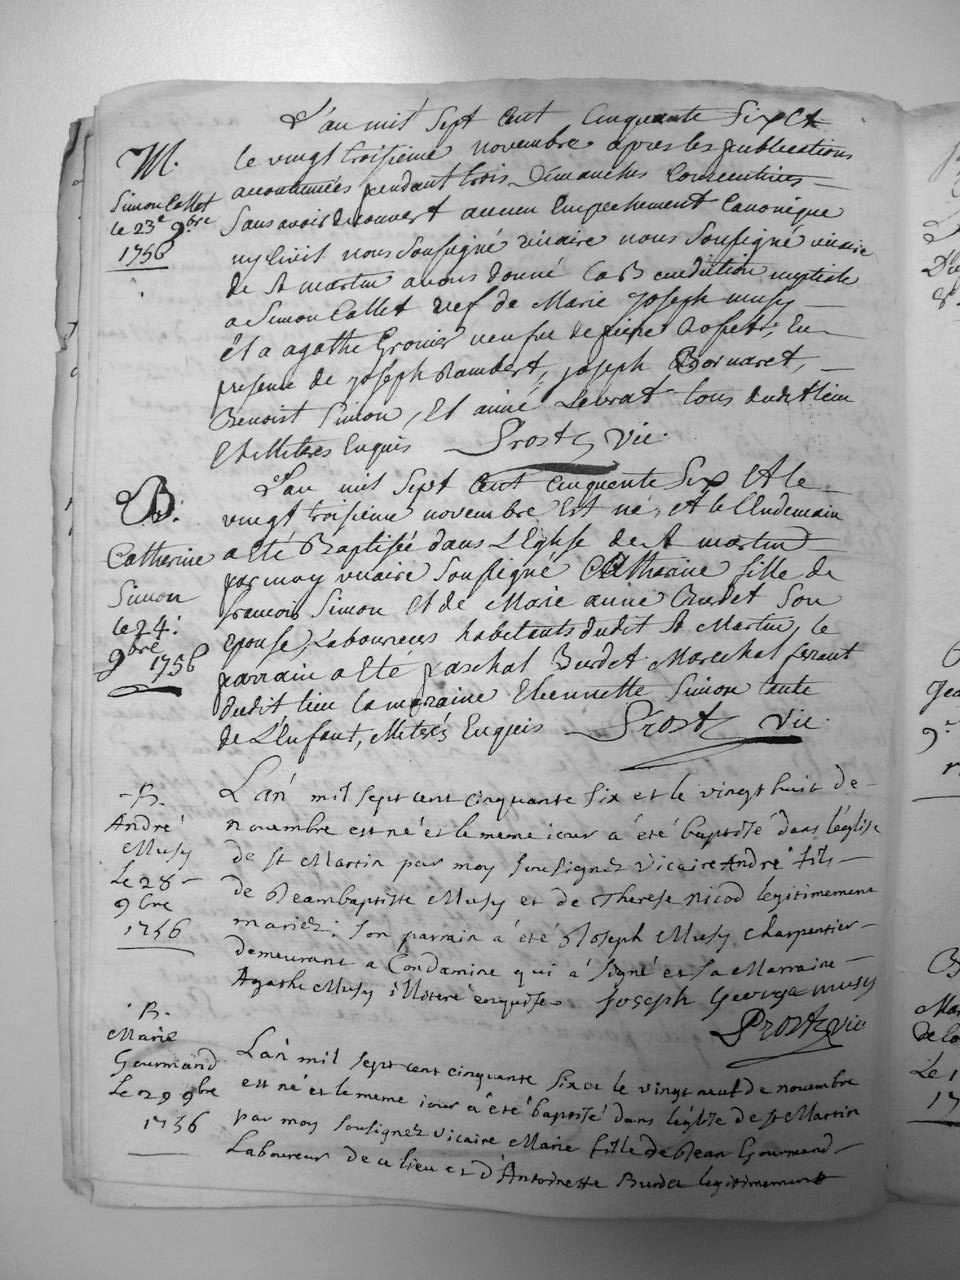 L'an mil sept cent cinquante six et
M.
le vingt troisieme novembre apres les publications
accoutumées pendant trois Dimanches Consecutives
Simon Collet
le 23e 9bre
1756
Sans avoir decouvert aucun Empechement Canonique
ny Civil nous soussigné vicaire nous soussigné vicaire
de St martin avons donné la B enediction nuptiale
a Simon Collet vef de Marie Joseph musy
et a agathe Gronier veufve de pierre En
presence de joseph Rambert, joseph Bornaret,
Benoist Simon, Et aimé Levrat tous dudit lieu
Et illiteres Enquis Prost Vic.
B.
Catherine
Simon
le 24:
9bre 1756
L'an mil Sept Cent cinquente Six Et le
vingt troisieme novembre Est né, et le lendemain
a eté Baptisée dans L'Eglise de St martin
par moy vicaire Soussigné Catherine fille de
francois Simon Et de Marie anne Burdet Son
epouse, Laboureurs habitants dudit St Martin, le
parrain a eté paschal Burdet Marechal ferant
dudit lieu la maraine Etiennette Simon tante
de L'Enfant, illiterés Enquis Prost Vic.
B.
André
Musy
Le 28
9bre
1756
L'an mil sept cent cinquante six et le vingt huit de
novembre est né et le meme iour a été baptisé dans l'église
de St Martin par moy soussignez vicaire André fils
de Jeambaptiste Musy et de Therese nicod legitimement
mariez: son parrain a été Joseph Musy charpentier
demeurant a Condamine qui a signé et sa Marraine
Agathe Musy illiteré enquise Joseph George musy
Prost vic
B.
Marie
Gourmand
Le 29 9bre
1756
L'an mil sept cent cinquante six et le vingt neuf de novembre
est né et le meme iour a été baptisé dans l'église de St Martin
par moy soussignez vicaire Marie fille de Jean Gourmand
Laboureur de ce lieu et d'Antoinette Burdet legitimement